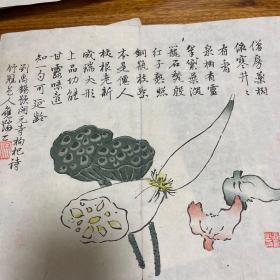 僧房藥樹
依寒井〻
有香
泉樹有靈
翠黛葉
籠石甃殷
紅子熟照
銅瓶枝繁
本是僊人
杖根老新
成瑞犬形
上品功能
甘露味還
知一勺可延齡
劉禹錫開元寺枸杞詩